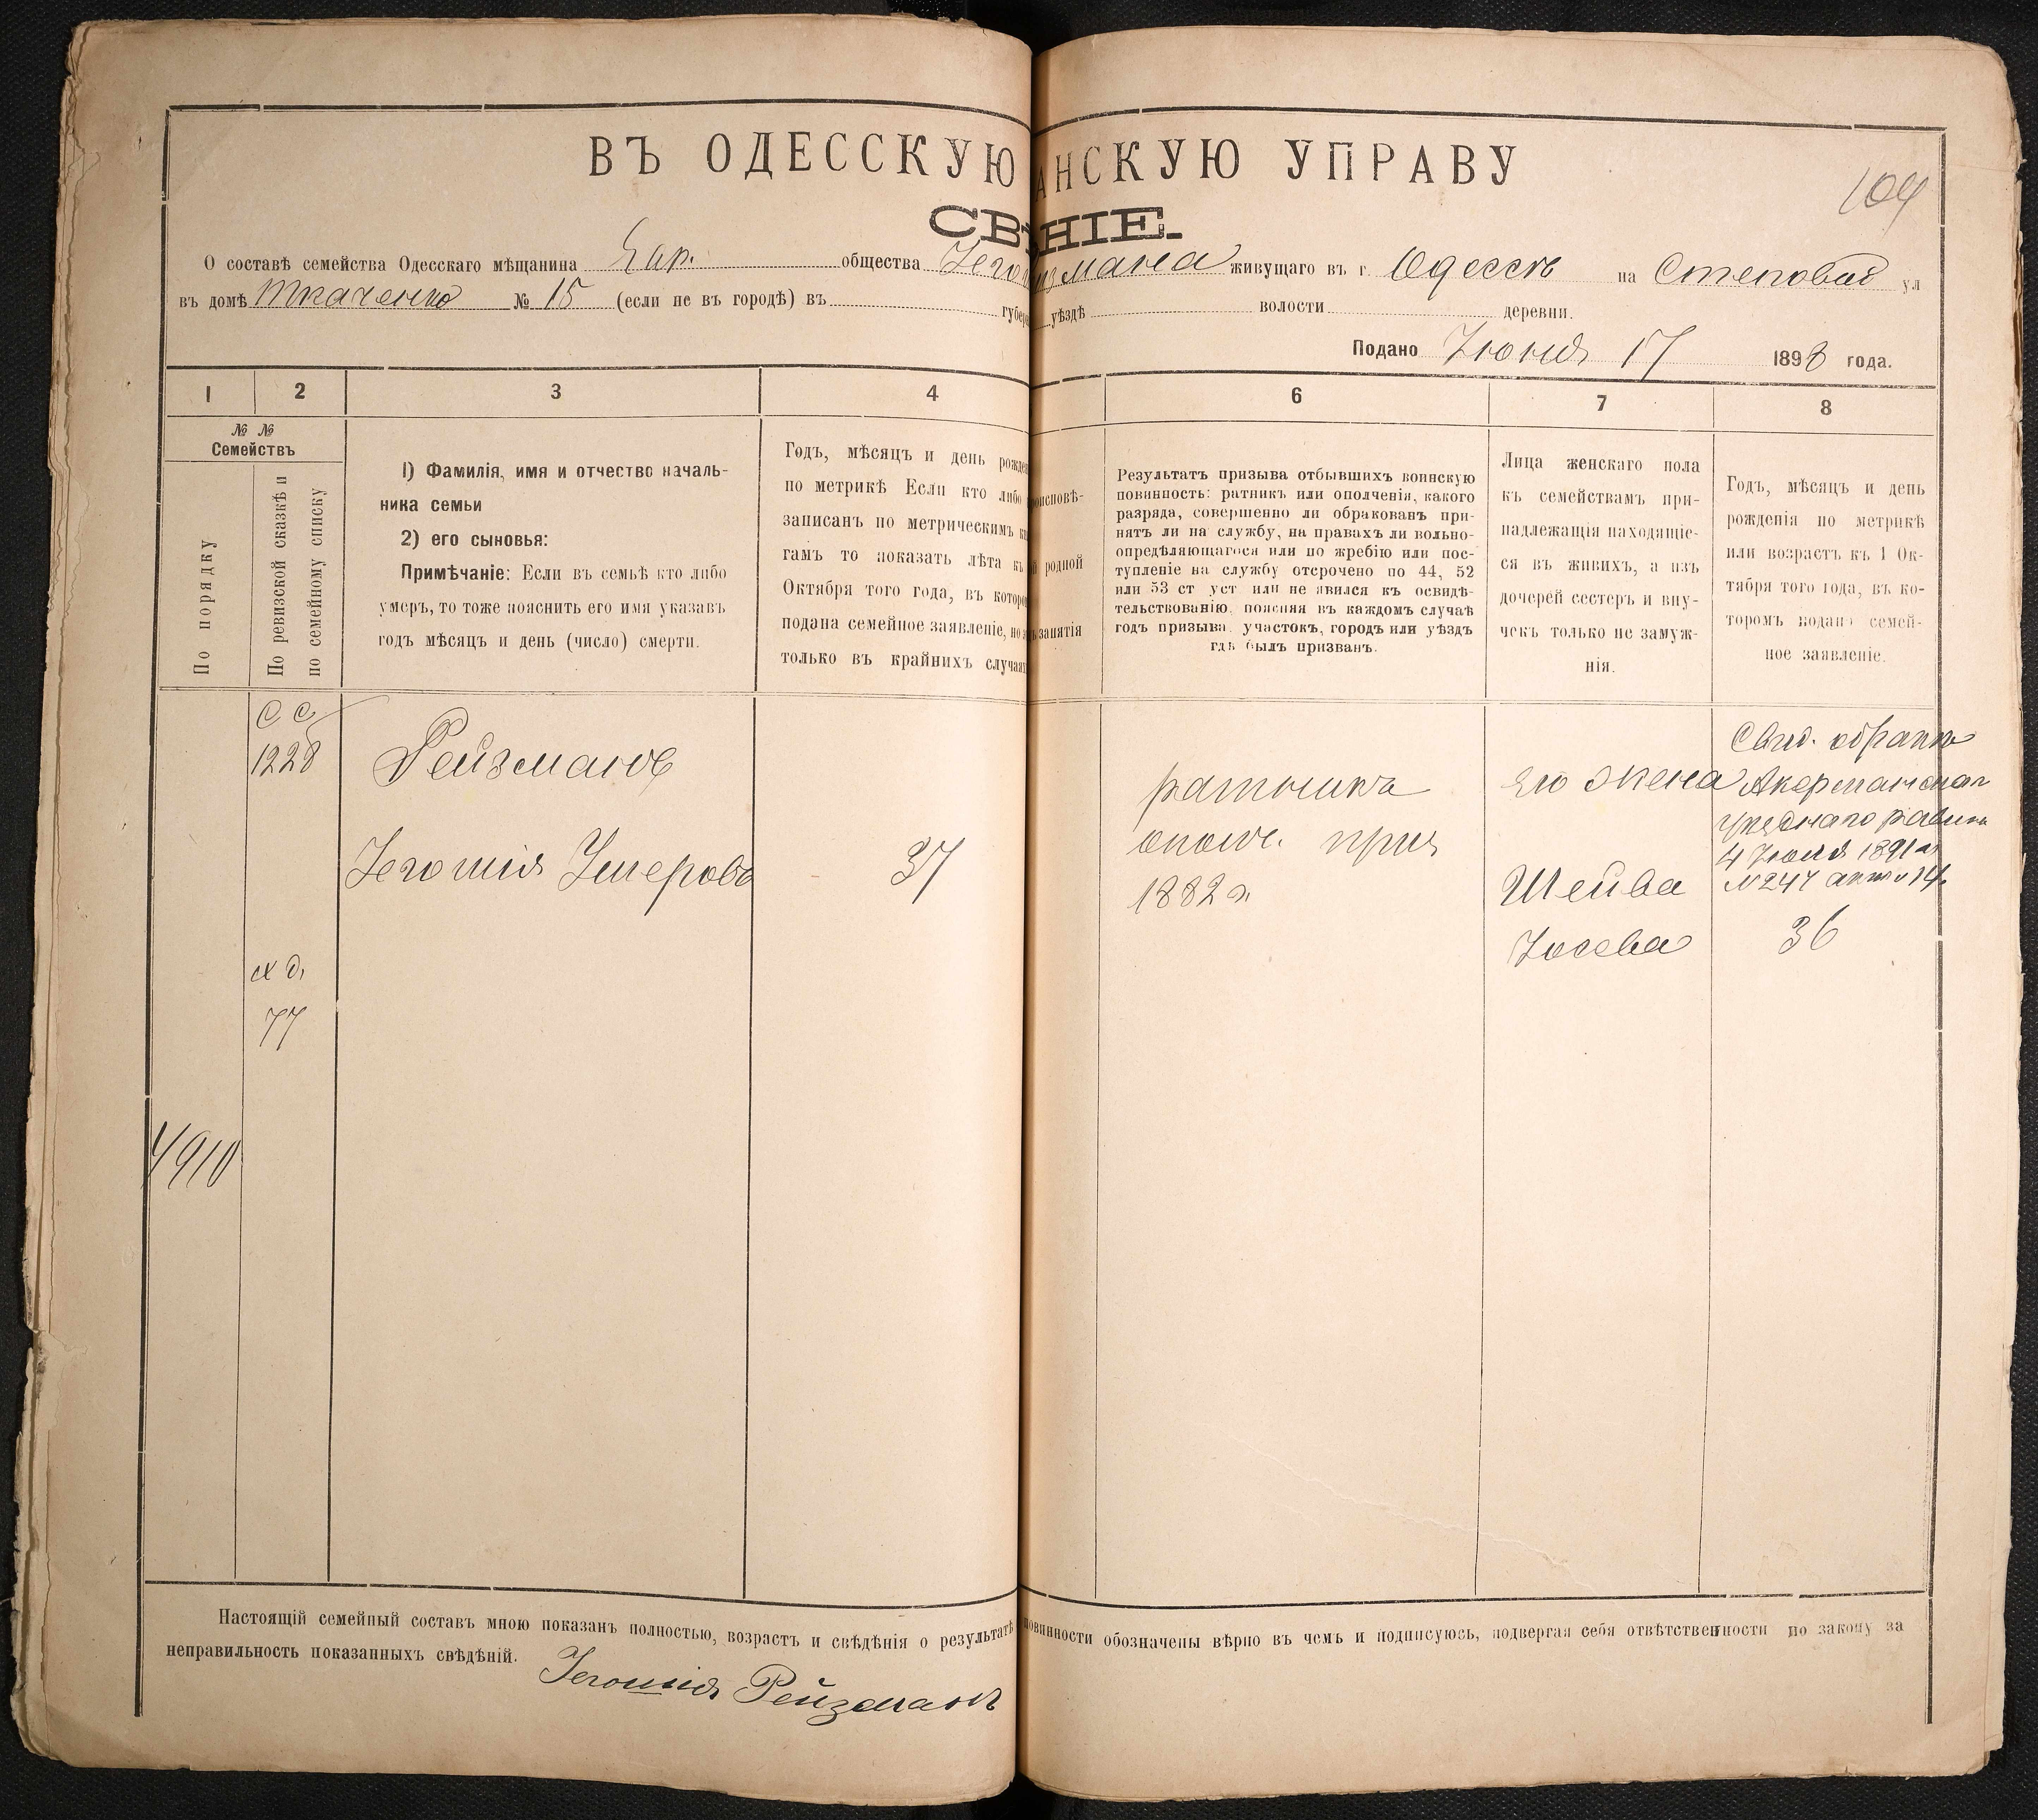 ВЪ ОДЕССКУЮ АНСКУЮ УПРАВУ
104
СВѢ НІЕ.
О составѣ семейства Одесскаго мѣщанина Евр. общества Іего измана живущаго въ г. Одессѣ на Степовой ул
въ домѣ Ткаченко № 15 (если не въ городѣ) въ губер уѣздѣ волости деревни.
Подано Іюня 17 1898 года.
1 2 3 4 6 7 8
№ №
Семействъ
По порядку
По ревизской сказкѣ и
по семейному списку
1) Фамилія, имя и отчество началь-
ника семьи
2) его сыновья:
Примѣчаніе: Если въ семьѣ кто либо
умеръ, то тоже пояснить его имя указавъ
годъ мѣсяцъ и день (число) смерти.
Годъ, мѣсяцъ и день рожде
по метрикѣ Если кто либо
записанъ по метрическимъ кн
гамъ то показать лѣта къ
Октября того года, въ котор
подана семейное заявленіе, но
только въ крайнихъ случая
роисповѣ-
й родной
занятія
Результатъ призыва отбывшихъ воинскую
повинность: ратникъ или ополченія, какого
разряда, совершенно ли обракованъ при-
нятъ ли на службу, на правахъ ли вольно-
опредѣляющагося или по жребію или пос-
тупленіе на службу отсрочено по 44, 52
или 53 ст уст или не явился къ освидѣ-
тельствованію, поясняя въ каждомъ случаѣ
годъ призыва, участокъ, городъ или уѣздъ
гдѣ былъ призванъ.
Лица женскаго пола
къ семействамъ при-
надлежащія находящіе-
ся въ живихъ, а изъ
дочерей сестеръ и вну-
чекъ только не замуж-
нія.
Годъ, мѣсяцъ и день
рожденія по метрикѣ
или возрастъ къ 1 Ок-
тября того года, въ ко-
торомъ подано семей-
ное заявленіе.
С С
1228
Рейзманъ
Іегошія Умеровъ
37
ратника
ополч. при
1882 г.
Его жена
Шейва
Іосева
Свид. о бракѣ
Акерманскаг
уѣзднаго равина
4 Іюля 1891 г.
№ 247
36
х д.
77
4910
Настоящій семейный составъ мною показанъ полностью, возрастъ и свѣдѣнія о результатѣ повинности обозначены вѣрно въ чемъ и подписуюсь, подвергая себя отвѣтственности по закону за
неправильность показанныхъ свѣдѣній.
Іегошія Рейзманъ